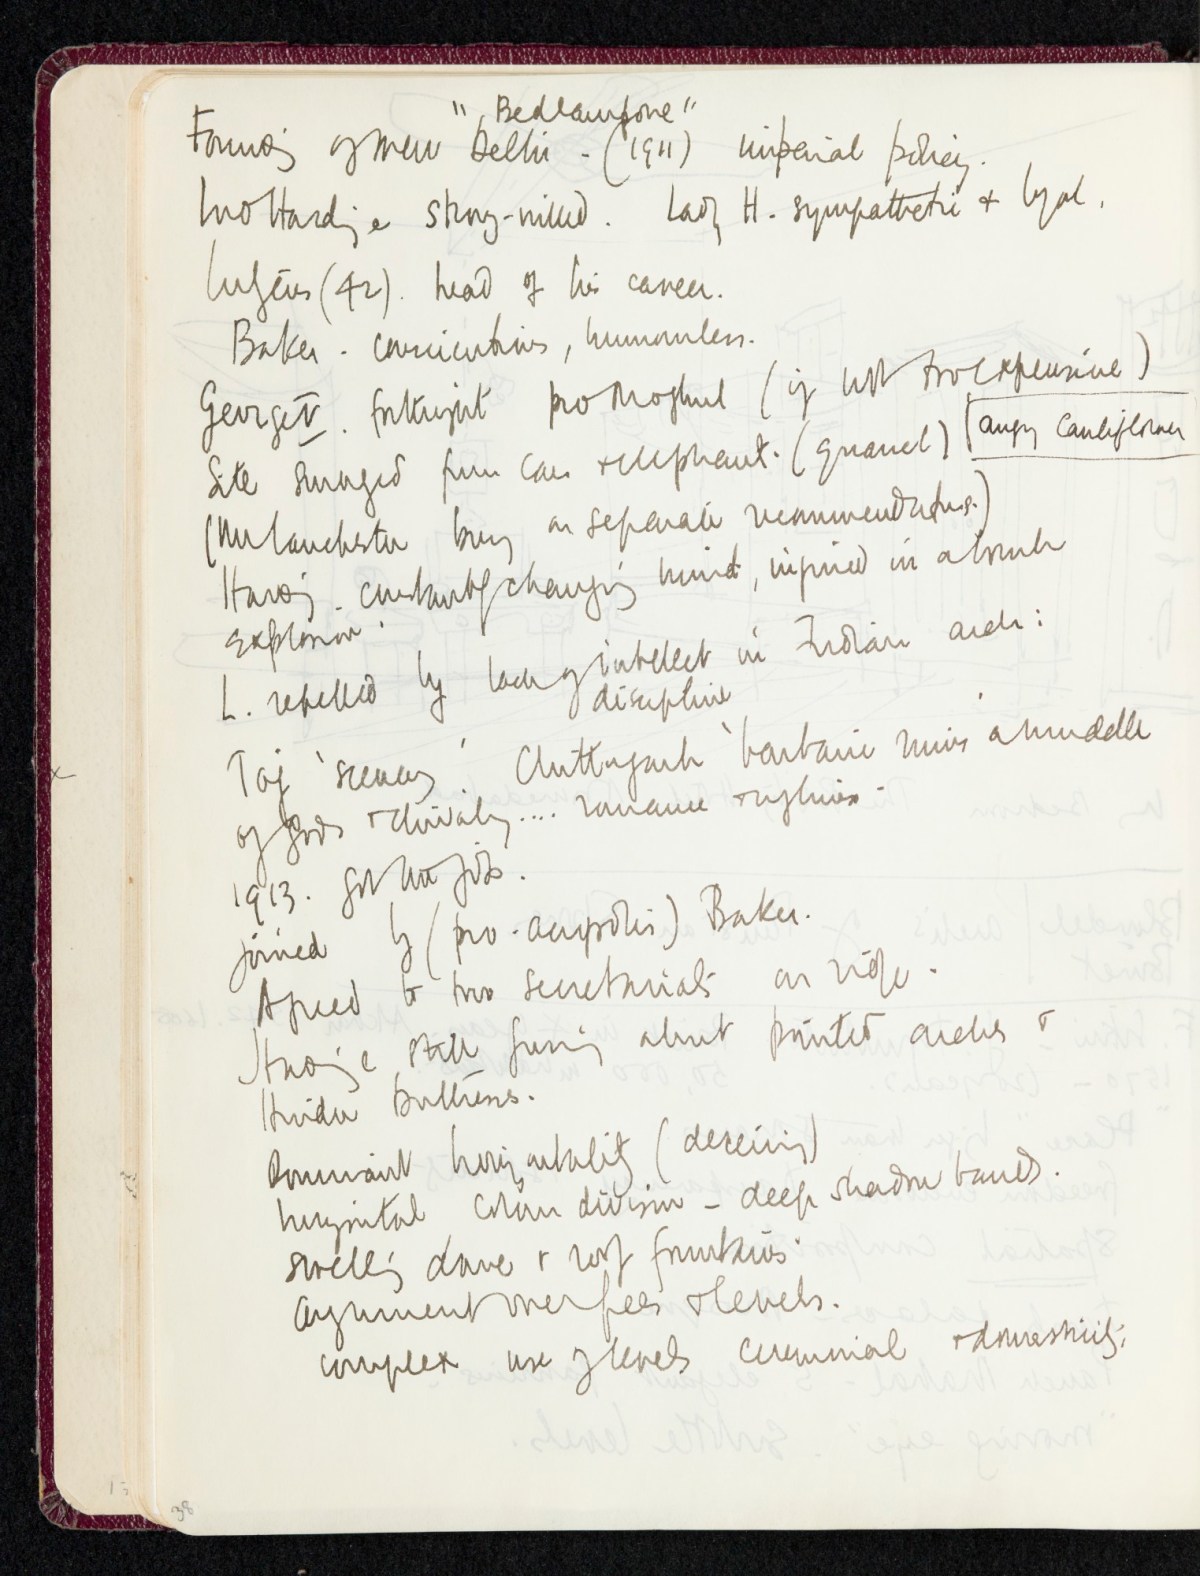 "Bedlampore"
Founding of New Delhi - (1911) imperial policy.
Lord Hardinge strong-willed. Lady H. sympathetic + loyal.
Lutyens (42). head of his career.
Baker - conscientious, humourless.
George V. forthright pro Moghul (if not too expensive)
Site surveyed from car + elephant. (quarrel) angry cauliflower
(Mr Lanchester busy on separate recommendations.)
Harding - constantly changing mind, injured in a bomb
explosion.
L. repelled by lack of intellect in Indian arch:
discipline
Taj 'scenery' Chittagarh 'barbaric ruins a muddle
of gods + chivalry.... romance + ugliness.
1913. got the job.
joined by (pro-acropolis) Baker.
Agreed to two secretariats on ridge.
Hardinge still fussing about pointed arches +
Hindu buttress.
Dominant horizontality (deceiving)
horizontal colour division - deep shadow bands.
swelling dome + roof fountains.
argument over fees + levels.
complex use of levels ceremonial + domesticity.
38